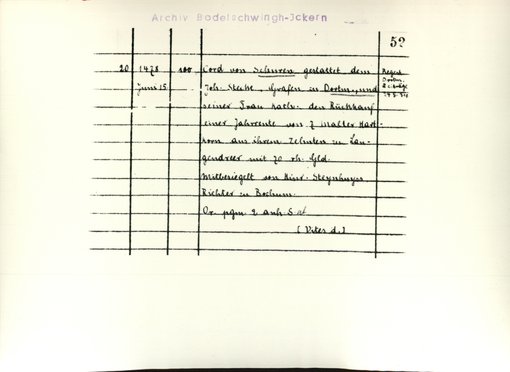 Archiv Bodelschwingh-Ickern
52
20 1478 100 Cord von Schuren gestattet dem
Juni 15 Joh. Stecke, Grafen in Dortmund
seiner Frau Kath. den Rückkauf
einer Jahrrente von 7 Malter Hart
korn aus ihrem Zehnten zu Lan-
gendreer mit 70 rh. Gld.
Mitbesiegelt von Hinr. Steynhuys
Richter in Bochum.
Or. pgm 2 anh. S.